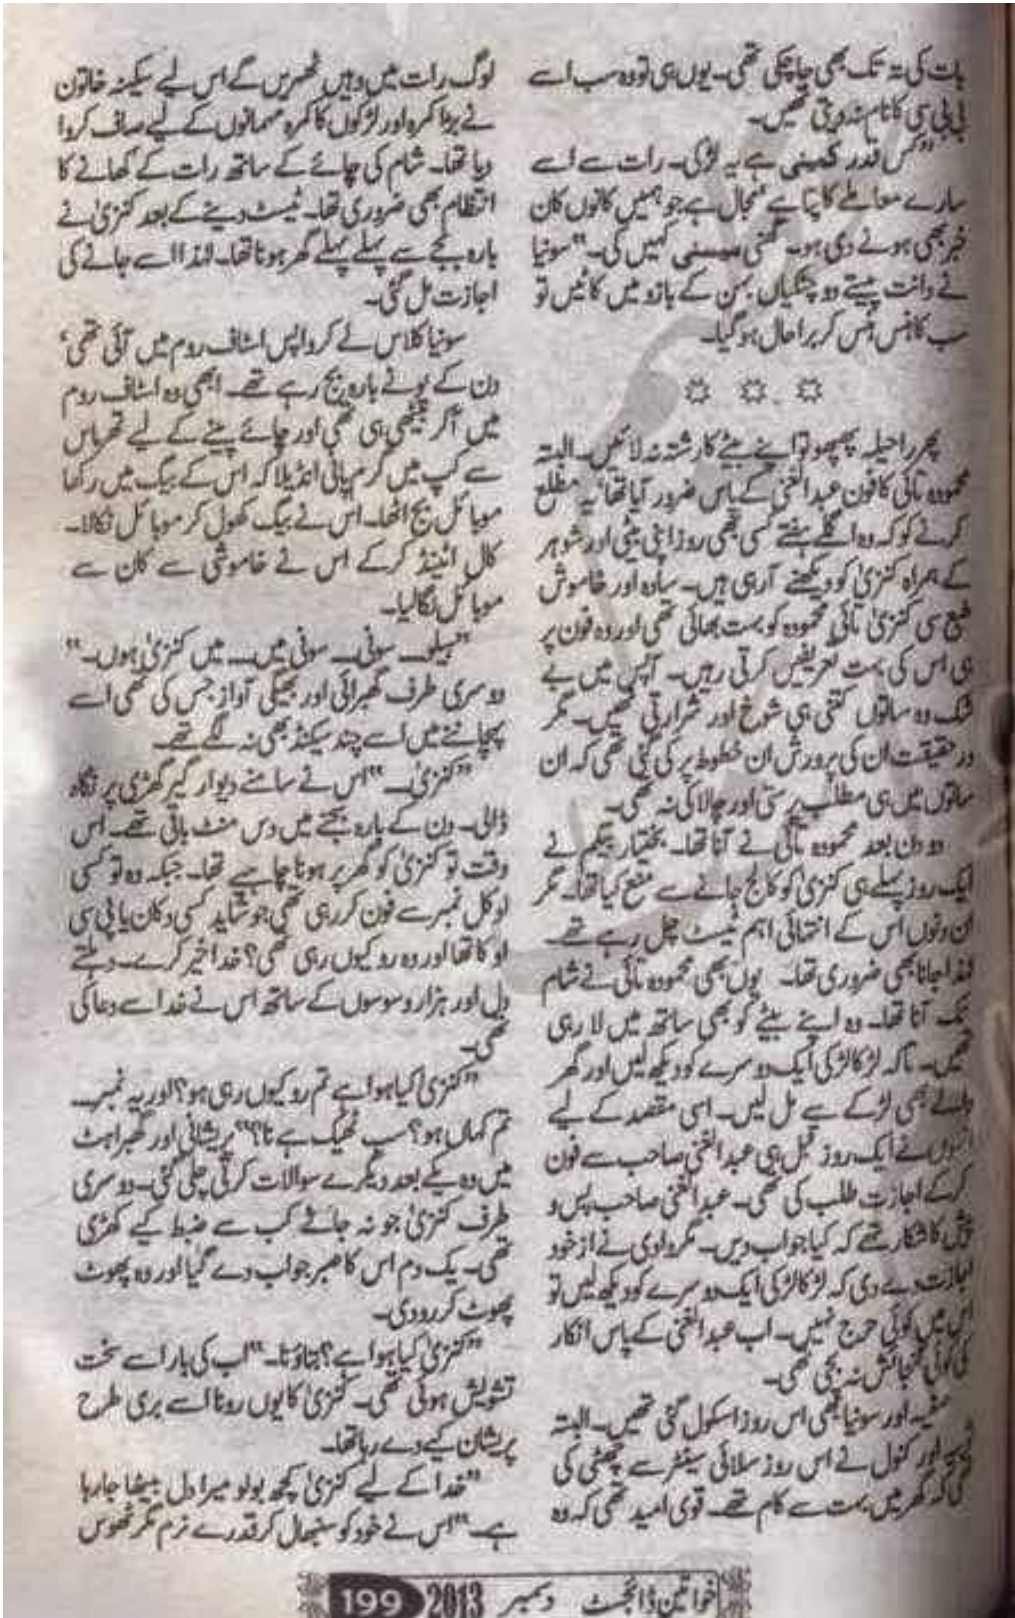 بات کی تہ تک بھی جا چکی تھی۔ یوں ہی تو وہ سب اسے
بی بی سی کا نام نہ دیتی تھیں۔
”کس قدر کمینی ہے یہ لڑکی۔ رات سے اسے
سارے معاملے کا پتا ہے مجال ہے جو ہمیں کانوں کان
خبر بھی ہونے دی ہو۔ گھنی میسنی کہیں کی۔“ سونیا
نے دانت پیستے دو چٹکیاں بہن کے بازو میں کاٹیں تو
سب کا ہنس ہنس کر برا حال ہو گیا۔
پھر راحیلہ پھپھو تو اپنے بیٹے کا رشتہ نہ لائیں۔ البتہ
محمودہ تائی کا فون عبدالغنی کے پاس ضرور آیا تھا یہ مطلع
کرنے کو کہ وہ اگلے ہفتے کسی بھی روز اپنی بیٹی اور شوہر
کے ہمراہ کنزیٰ کو دیکھنے آ رہی ہیں۔ سادہ اور خاموش
طبع سی کنزیٰ تائی محمودہ کو بہت بھائی تھی اور وہ فون پر
ہی اس کی بہت تعریفیں کرتی رہیں۔ آپس میں بے
شک وہ ساتوں کتنی ہی شوخ اور شرارتی تھیں۔ مگر
درحقیقت ان کی پرورش ان خطوط پر کی گئی تھی کہ ان
ساتوں میں ہی مطلب پرستی اور چالاکی نہ تھی۔
دو دن بعد محمودہ تائی نے آنا تھا۔ بختیار بیگم نے
ایک روز پہلے ہی کنزیٰ کو کالج جانے سے منع کیا تھا۔ مگر
ان دنوں اس کے انتہائی اہم ٹیسٹ چل رہے تھے۔
لہٰذا جانا بھی ضروری تھا۔ یوں بھی محمودہ تائی نے شام
تک آنا تھا۔ وہ اپنے بیٹے کو بھی ساتھ میں لا رہی
تھیں۔ تاکہ لڑکا لڑکی ایک دوسرے کو دیکھ لیں اور گھر
والے بھی لڑکے سے مل لیں۔ اسی مقصد کے لیے
انہوں نے ایک روز قبل ہی عبدالغنی صاحب سے فون
کر کے اجازت طلب کی تھی۔ عبدالغنی صاحب پس و
پیش کا شکار تھے کہ کیا جواب دیں۔ مگر دادی نے از خود
اجازت دے دی کہ لڑکا لڑکی ایک دوسرے کو دیکھ لیں تو
اس میں کوئی حرج نہیں۔ اب عبدالغنی کے پاس انکار
کی کوئی گنجائش نہ بچی تھی۔
اور سونیا بھی اس روز اسکول گئی تھیں۔ البتہ
اور کنول نے اس روز سلائی سینٹر سے چھٹی کی
تھی کہ گھر میں بہت سے کام تھے۔ قوی امید تھی کہ وہ
لوگ رات میں وہیں ٹھہریں گے اس لیے سکینہ خاتون
نے بڑا کمرہ اور لڑکوں کا کمرہ مہمانوں کے لیے صاف کروا
دیا تھا۔ شام کی چائے کے ساتھ رات کے کھانے کا
انتظام بھی ضروری تھا۔ ٹیسٹ دینے کے بعد کنزیٰ نے
بارہ بجے سے پہلے پہلے گھر ہونا تھا۔ لہٰذا اسے جانے کی
اجازت مل گئی۔
سونیا کلاس لے کر واپس اسٹاف روم میں آئی تھی،
دن کے پونے بارہ بج رہے تھے۔ ابھی وہ اسٹاف روم
میں آ کر بیٹھی ہی تھی اور چائے پینے کے لیے تھرماس
سے کپ میں گرم پانی انڈیلا کہ اس کے بیگ میں رکھا
موبائل بج اٹھا۔ اس نے بیگ کھول کر موبائل نکالا۔
کال اٹینڈ کر کے اس نے خاموشی سے کان سے
موبائل لگا لیا۔
”ہیلو۔ سونی۔ سونی میں۔ میں کنزیٰ ہوں۔“
دوسری طرف گھبرائی اور بھیگی آواز جس کی تھی اسے
پہچاننے میں اسے چند سیکنڈ بھی نہ لگے تھے۔
”کنزیٰ۔“ اس نے سامنے دیوار گیر گھڑی پر نگاہ
ڈالی۔ دن کے بارہ بجنے میں دس منٹ باقی تھے۔ اس
وقت تو کنزیٰ کو گھر پر ہونا چاہیے تھا۔ جبکہ وہ تو کسی
لوکل نمبر سے فون کر رہی تھی جو شاید کسی دکان یا پی سی
او کا تھا اور وہ رو کیوں رہی تھی؟ خدا خیر کرے۔ دہلتے
دل اور ہزار وسوسوں کے ساتھ اس نے خدا سے دعا کی
تھی۔
”کنزیٰ! کیا ہوا ہے تم رو کیوں رہی ہو؟ اور یہ نمبر۔
تم کہاں ہو؟ سب ٹھیک ہے نا؟“ پریشانی اور گھبراہٹ
میں وہ یکے بعد دیگرے سوالات کرتی چلی گئی۔ دوسری
طرف کنزیٰ جو نہ جانے کب سے ضبط کیے کھڑی
تھی۔ یک دم اس کا صبر جواب دے گیا اور وہ پھوٹ
پھوٹ کر رو دی۔
”کنزیٰ کیا ہوا ہے؟ بتاؤ نا۔“ اب کی بار اسے سخت
تشویش ہوئی تھی۔ کنزیٰ کا یوں رونا اسے بری طرح
پریشان کیے دے رہا تھا۔
”خدا کے لیے کنزیٰ کچھ بولو میرا دل بیٹھا جا رہا
ہے۔“ اس نے خود کو سنبھال کر قدرے نرم مگر ٹھوس
خواتین ڈائجسٹ دسمبر 2013 199